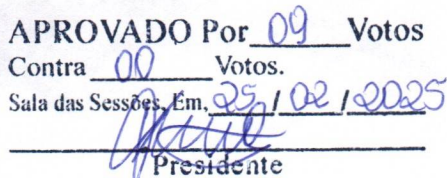 APROVADO Por 09 Votos
Contra 00 Votos.
Sala das Sessões, Em, 25 / 02 / 2025
Presidente